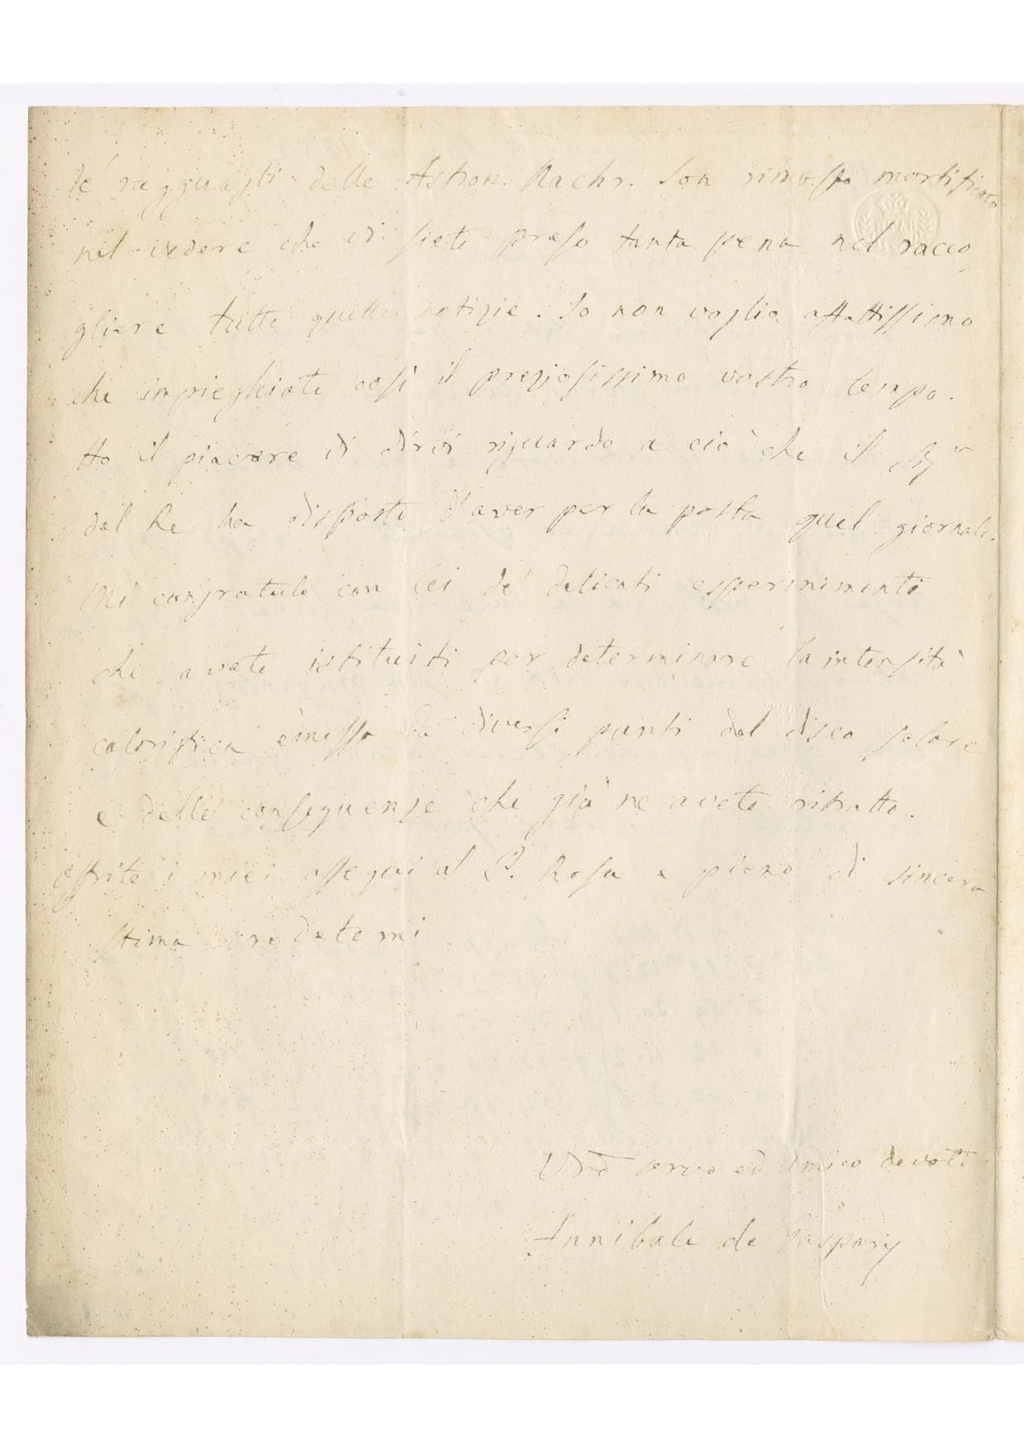 de' ragguagli delle Astron. Nachr. Son rimasto mortificato
nel vedere che vi siete preso tanta pena nel racco,
gliere tutte quelle notizie. Io non voglio affattissimo
che impieghiate così il preziosissimo vostro tempo.
Ho il piacere di dirvi riguardo a ciò che il Sigr
del Re ha disposto d'aver per la posta quel giornale.
Mi congratulo con lei de' delicati esperimenti
che avete istituiti per determinare la intensità
calorifica emessa da diversi punti del disco solare
e delle conseguenze che già ne avete ritratto.
Offrite i miei ossequi al P. Rosa e pieno di sincera
stima credetemi
servo ed amico devoto
Annibale de Gasparis